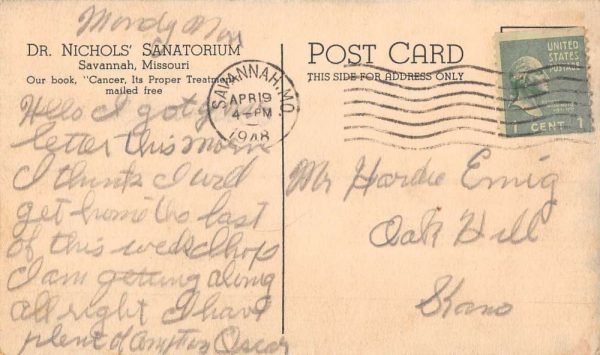 Mondy
DR. NICHOLS' SANATORIUM
Savannah, Missouri
Our book, "Cancer, Its Proper Treatment,"
mailed free
Hello I got your
letter this morn
I think I will
get home the last
of this week I hop
I am getting along
all right I have
plent Oscar
POST CARD
THIS SIDE FOR ADDRESS ONLY
SAVANNAH, MO.
APR 19
4-PM
1948
UNITED
STATES
POSTAGE
1 CENT 1
Mr Hardie Emig
Oak Hill
Kans